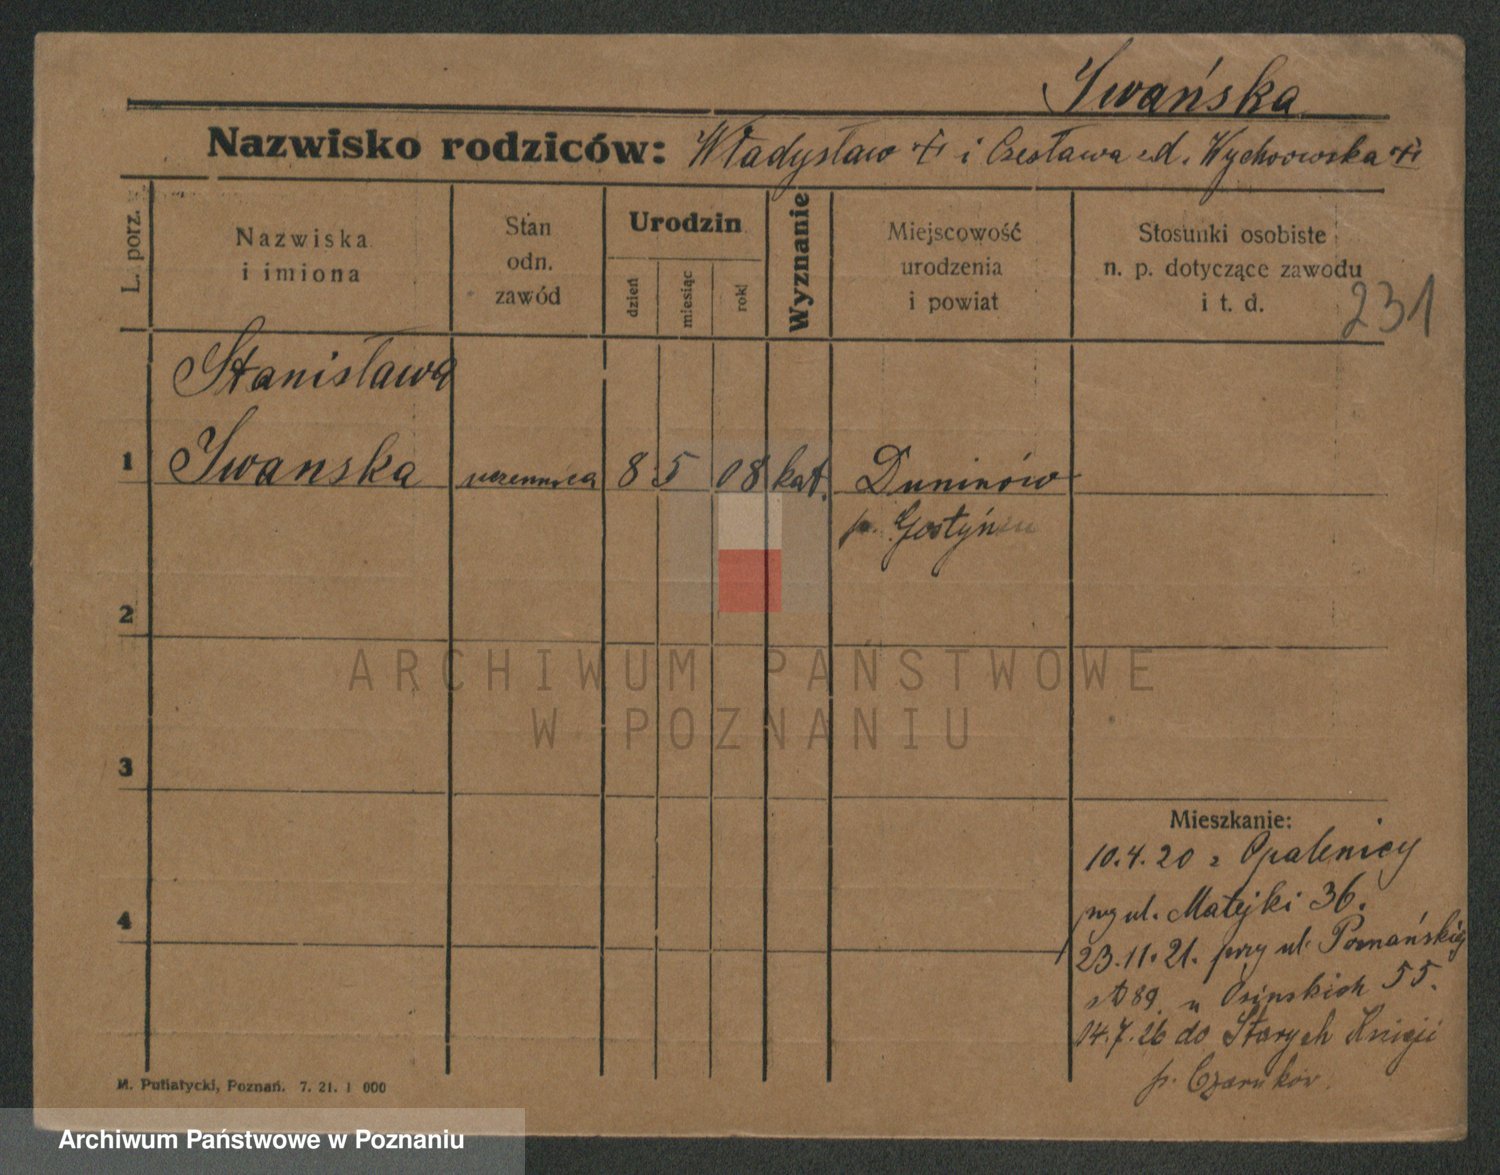 Iwańska
Nazwisko rodziców: Władysław + i Czesława z d. Wychowska +
L. porz.
Nazwiska
i imiona
Stan
odn.
zawód
Urodzin
dzień
miesiąc
rok
Wyznanie
Miejscowość
urodzenia
i powiat
Stosunki osobiste
n. p. dotyczące zawodu
i t. d.
231
Stanisława
1 Iwanska uczennica 8 5 08 kat. Duninów
p. Gostynin
2
ARCHIWUM PAŃSTWOWE
W POZNANIU
3
4
Mieszkanie:
10.4.20 z Opalenicy
ul. Matejki 36.
23.11.21. przy ul. Poznańskiej
89 u Osinskich 55.
14.7.26 do Starych
p. Czarnków.
M. Putiatycki, Poznań. 7. 21. 1 000
Archiwum Państwowe w Poznaniu